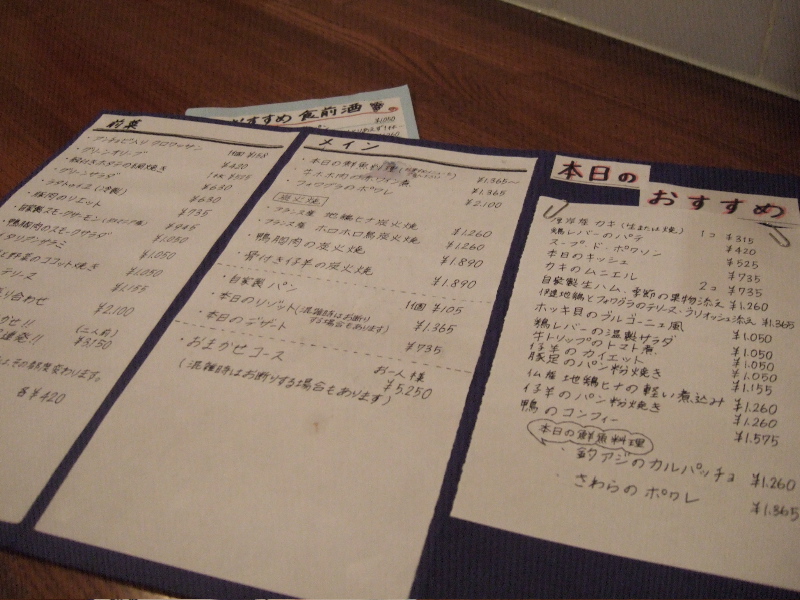 おすすめ 食前酒
¥1,050
前菜
・アンチョビ入りクロワッサン 1個 ¥158
・グリーンオリーブ ¥420
グリーンサラダ ¥630
¥630
豚肉のリエット ¥735
自家製スモークサーモン ¥945
鴨胸肉のスモークサラダ ¥1,050
イタリアンサラミ ¥1,050
野菜のココット焼き ¥1,050
テリーヌ ¥1,155
盛り合わせ ¥2,100
(二人前)
¥3,150
各¥420
メイン
・本日の鮮魚料理 ¥1,365〜
¥1,365
・フォワグラのポワレ ¥2,100
炭火焼
・フランス産 地鶏ヒナ炭火焼 ¥1,260
・フランス産 ホロホロ鳥炭火焼 ¥1,260
・鴨胸肉の炭火焼 ¥1,890
・骨付き仔羊の炭火焼 ¥1,890
・自家製パン 1個 ¥105
・本日のリゾット(混雑時はお断りする場合もあります) ¥1,365
・本日のデザート ¥735
・おまかせコース お一人様 ¥5,250
(混雑時はお断りする場合もあります)
本日の
おすすめ
カキ(生または焼) 1コ ¥315
鶏レバーのパテ ¥420
スープ・ド・ポワソン ¥525
本日のキッシュ ¥735
カキのムニエル 2コ ¥735
自家製生ハム・季節の果物添え ¥1,260
伊達地鶏とフォワグラのテリーヌ・ブリオッシュ添え ¥1,365
ホッキ貝のブルゴーニュ風 ¥1,050
鶏レバーの温製サラダ ¥1,050
牛トリップのトマト煮 ¥1,050
仔羊のカイエット ¥1,050
豚足のパン粉焼き ¥1,155
仏産地鶏ヒナの軽い煮込み ¥1,260
仔羊のパン粉焼き ¥1,260
鴨のコンフィー ¥1,575
本日の鮮魚料理
・釣アジのカルパッチョ ¥1,260
・さわらのポワレ ¥1,365